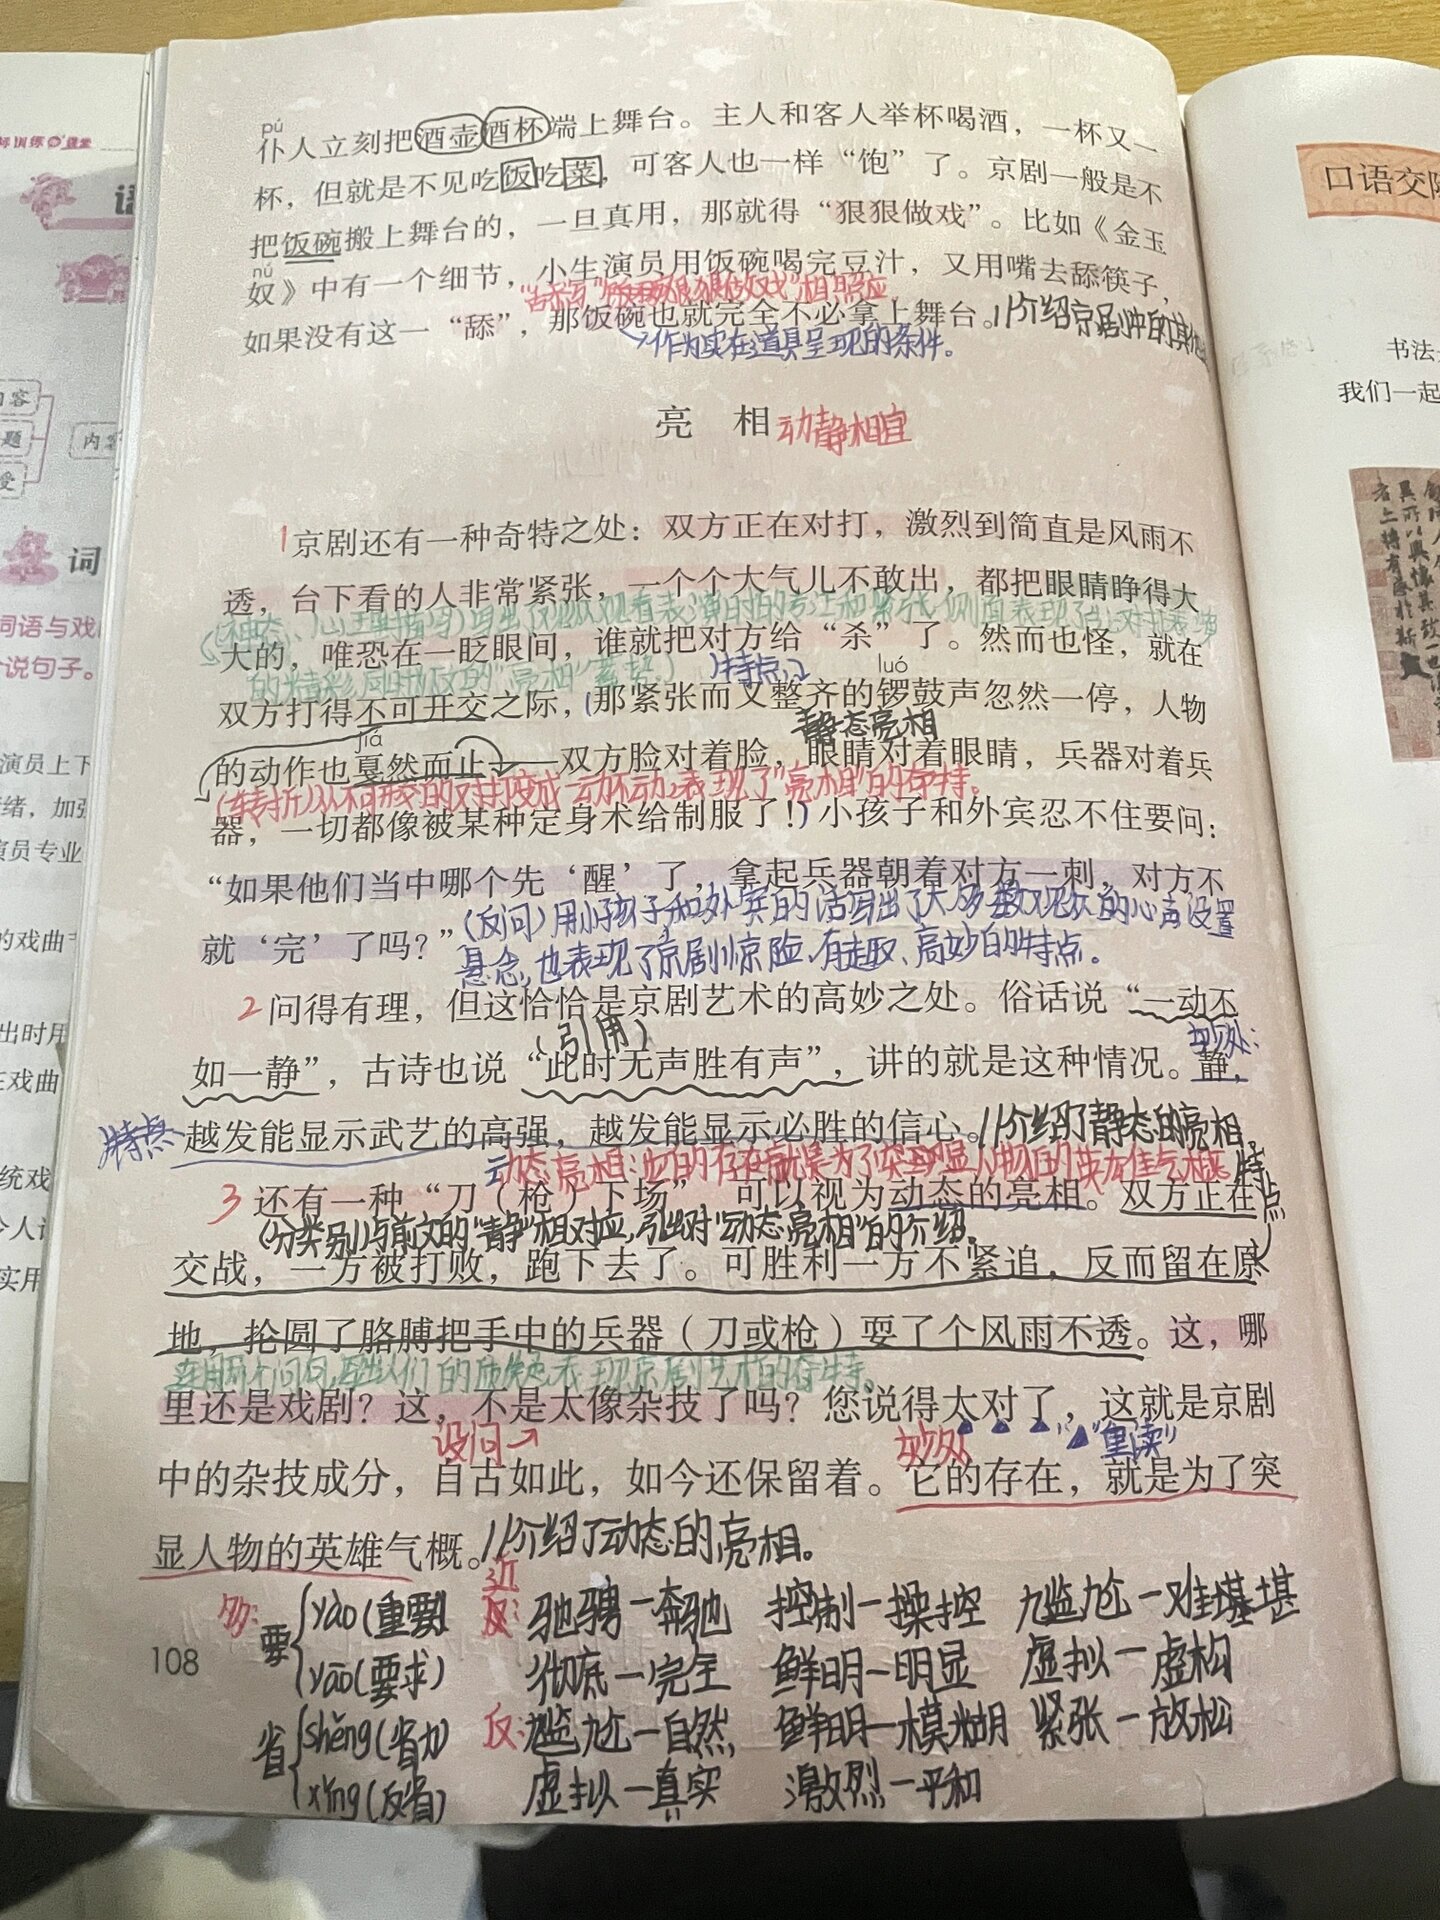 pú
仆人立刻把酒壶酒杯端上舞台。主人和客人举杯喝酒，一杯又一
杯，但就是不见吃饭吃菜，可客人也一样“饱”了。京剧一般是不
把饭碗搬上舞台的，一旦真用，那就得“狠狠做戏”。比如《金玉
nú
奴》中有一个细节，小生演员用饭碗喝完豆汁，又用嘴去舔筷子，
如果没有这一“舔”，那饭碗也就完全不必拿上舞台。
作为实在道具呈现的条件。
亮 相
动静相宜
1 京剧还有一种奇特之处：双方正在对打，激烈到简直是风雨不
透，台下看的人非常紧张，一个个大气儿不敢出，都把眼睛睁得大
大的，唯恐在一眨眼间，谁就把对方给“杀”了。然而也怪，就在
特点
luó
双方打得不可开交之际，那紧张而又整齐的锣鼓声忽然一停，人物
静态亮相
jiá
的动作也戛然而止——双方脸对着脸，眼睛对着眼睛，兵器对着兵
(转折)从不可开交的对打变成一动不动,表现了“亮相”的奇特。
器，一切都像被某种定身术给制服了！小孩子和外宾忍不住要问：
“如果他们当中哪个先‘醒’了，拿起兵器朝着对方一刺，对方不
(反问)用小孩子和外宾的话写出了大多数观众的心声设置
就‘完’了吗？”
悬念,也表现了京剧惊险、有趣、高妙的特点。
2 问得有理，但这恰恰是京剧艺术的高妙之处。俗话说“一动不
(引用)
妙处:
如一静”，古诗也说“此时无声胜有声”，讲的就是这种情况。静，
特点
越发能显示武艺的高强，越发能显示必胜的信心。
//介绍了静态的亮相
动态亮相:它的存在就是为了突显人物的英雄气概。
特点
3 还有一种“刀（枪）下场”，可以视为动态的亮相。双方正在
(分类别)与前文的“静”相对应,引出对“动态亮相”的介绍。
交战，一方被打败，跑下去了。可胜利一方不紧追，反而留在原
地，抡圆了胳膊把手中的兵器（刀或枪）耍了个风雨不透。这，哪
里还是戏剧？这，不是太像杂技了吗？您说得太对了，这就是京剧
设问→
妙处
“重读”
中的杂技成分，自古如此，如今还保留着。它的存在，就是为了突
显人物的英雄气概。
//介绍了动态的亮相。
多:
要
yào(重要)
yāo(要求)
省
shěng(省力)
xǐng(反省)
近
驰骋—奔驰 控制—操控 尴尬—难堪
彻底—完全 鲜明—明显 虚拟—虚构
反:尴尬—自然 鲜明—模糊 紧张—放松
虚拟—真实 激烈—平和
108
口语交际
书法
我们一起
词
词语与戏
说句子。
演员上下
绪，加强
演员专业
的戏曲
出时用
在戏曲
统戏
令人
实用